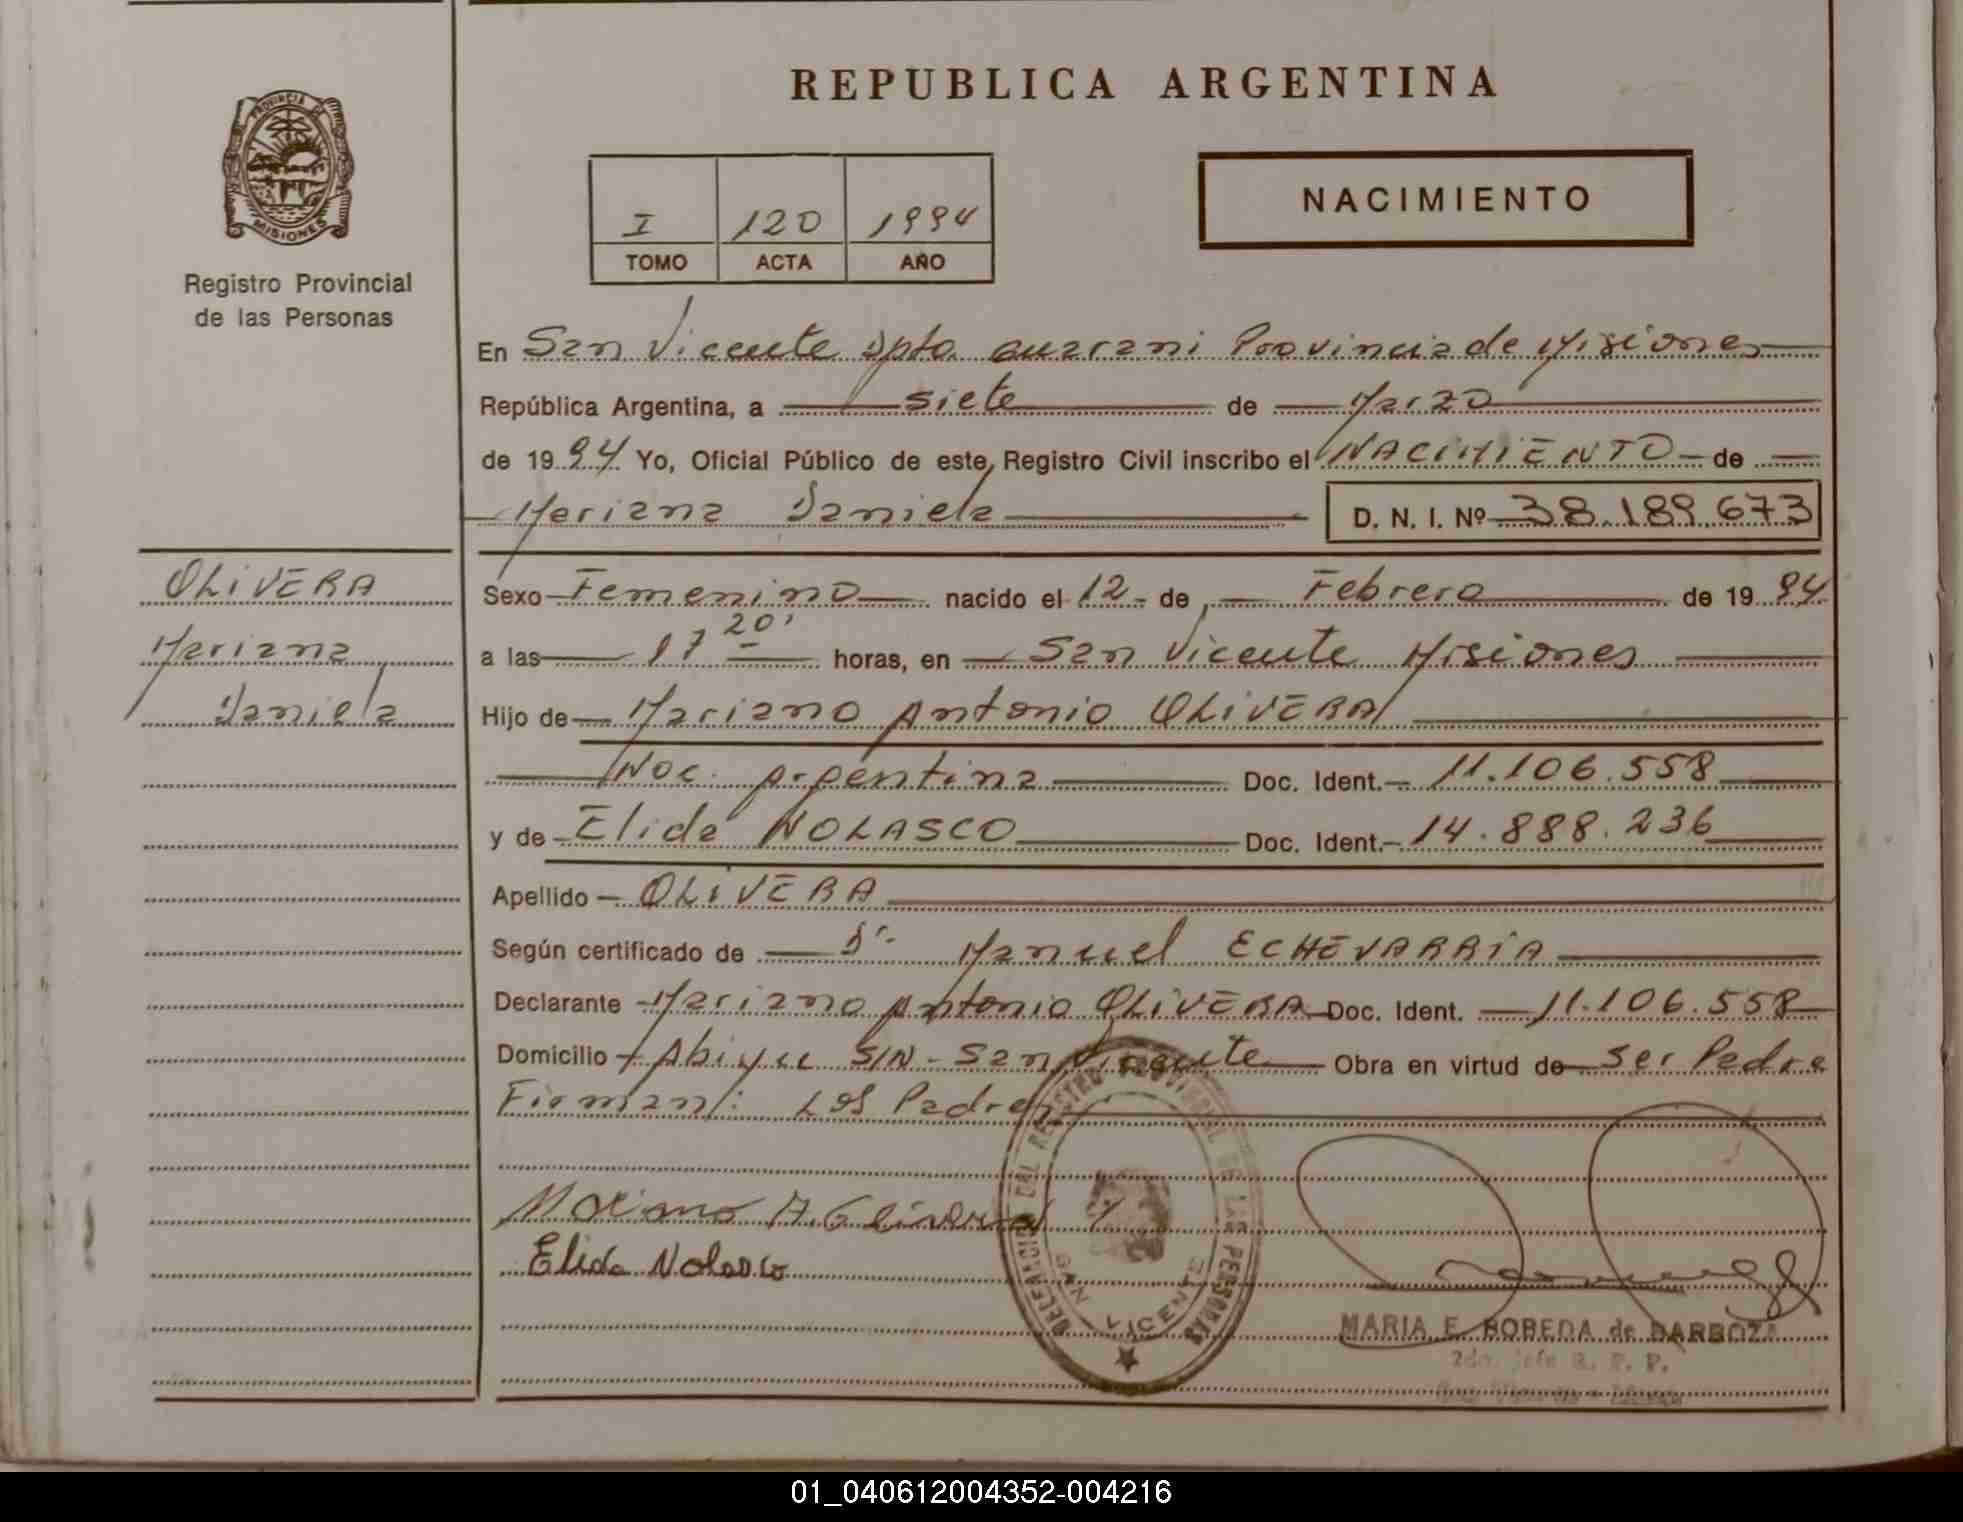 REPUBLICA ARGENTINA
PROVINCIA DE
MISIONES
Registro Provincial
de las Personas
I 120 1994
TOMO ACTA AÑO
NACIMIENTO
En San Vicente Dpto Guarani Provincia de Misiones
República Argentina, a siete de Marzo
de 1994 Yo, Oficial Público de este Registro Civil inscribo el NACIMIENTO de
Mariana Daniela D. N. I. Nº 38.189.673
OLIVERA
Mariana
Daniela
Sexo Femenino nacido el 12 de Febrero de 1994
a las 17 20' horas, en San Vicente Misiones
Hijo de Mariano Antonio OLIVERA
Nac. Argentina Doc. Ident. 11.106.558
y de Elida NOLASCO Doc. Ident. 14.888.236
Apellido OLIVERA
Según certificado de Dr. Manuel ECHEVARRIA
Declarante Mariano Antonio OLIVERA Doc. Ident. 11.106.558
Domicilio Abiyu S/N - San Vicente Obra en virtud de ser Padre
Firman: Los Padres
Mariano A. Olivera
Elida Nolasco
DELEGACION DEL REGISTRO PROVINCIAL DE LAS PERSONAS
SAN VICENTE
MARIA E. BOBEDA de BARBOZA
2do. Jefe R. P. P.
01_040612004352-004216